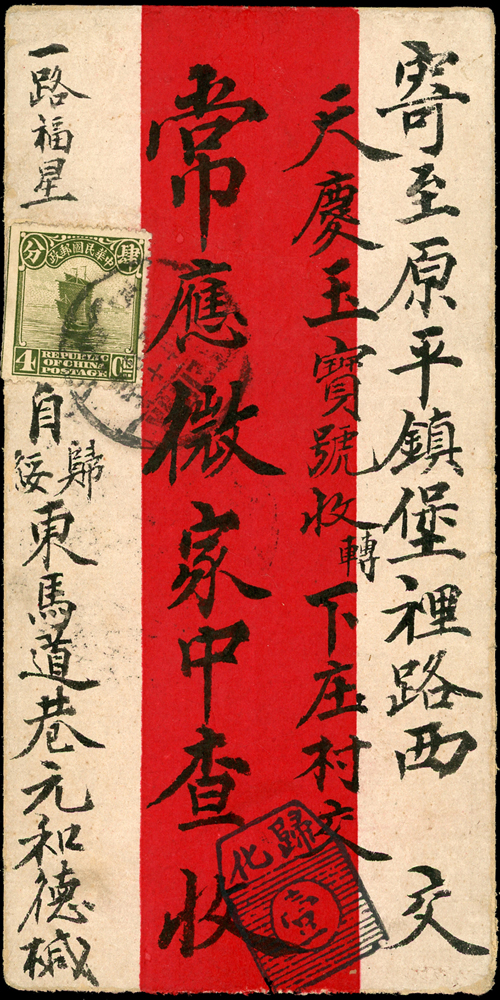 寄至原平鎮堡裡路西 交
天慶玉寶號收轉下庄村交
常應微家中查收
歸化
一路福星
中華民國郵政
肆分
4 REPUBLIC OF CHINA POSTAGE CTS
自歸綏東馬道巷元和德椷